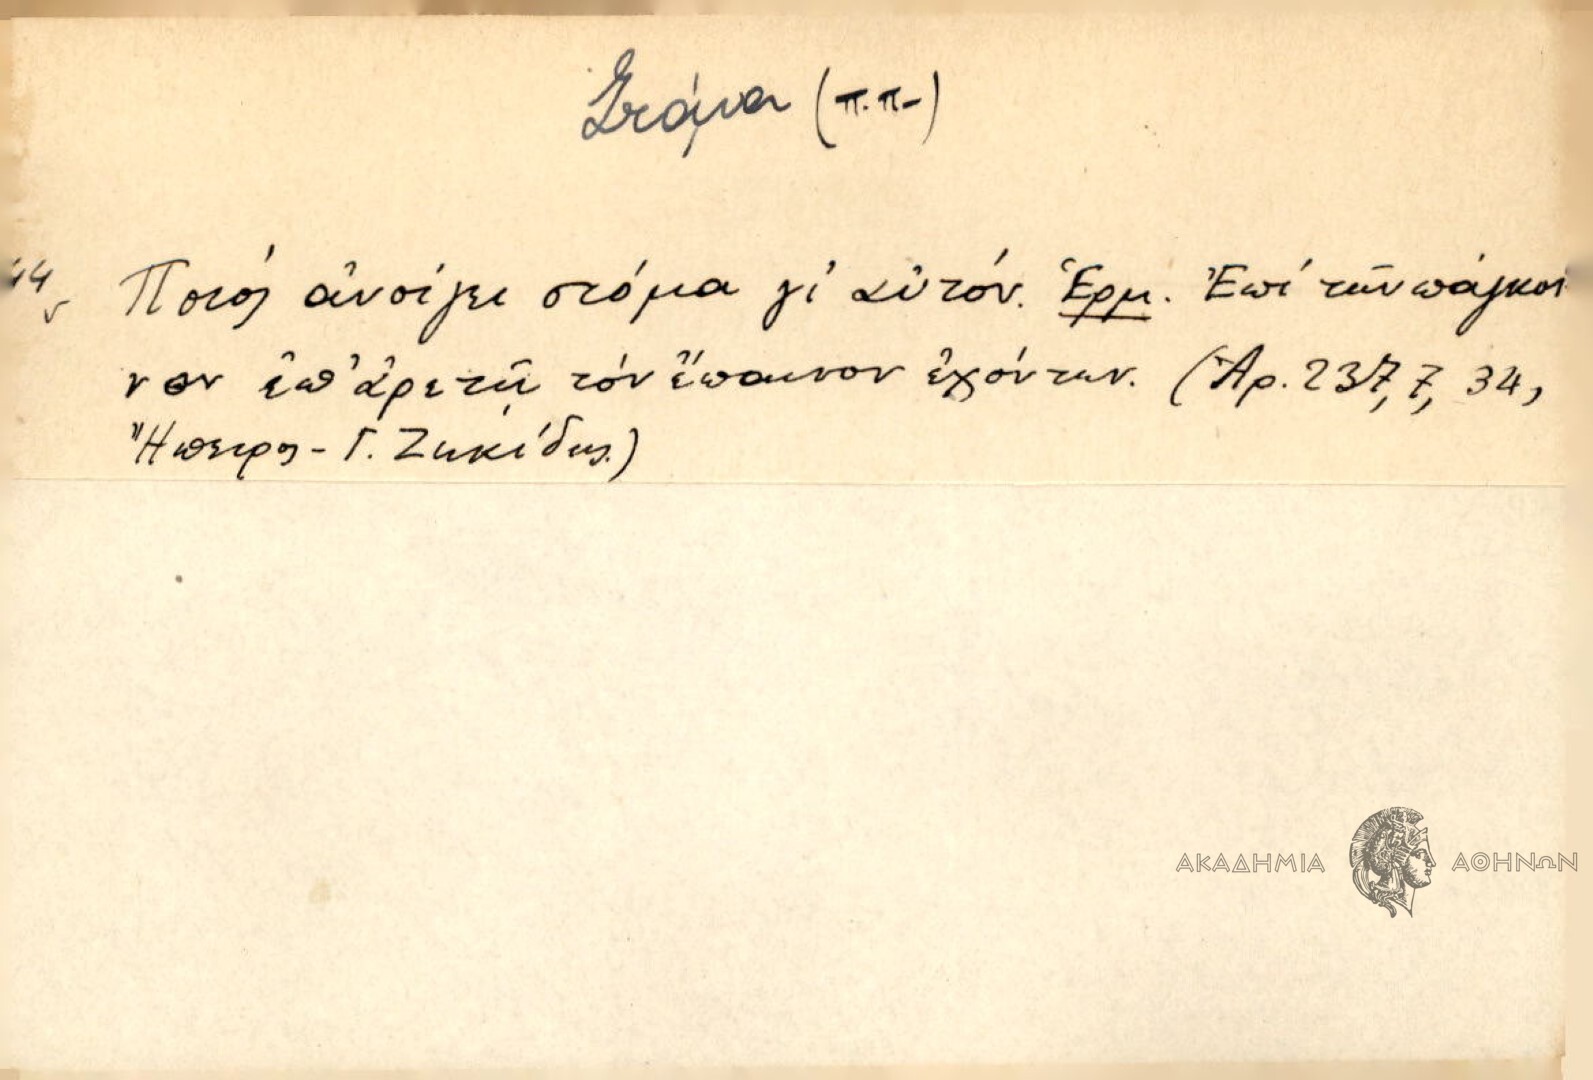 Στόμα (π.π-)
44 Ποιός ἀνοίγει στόμα γι' αὐτόν. Ἑρμ. Ἐπί τῶν πάγκοι
νον ἐπ' ἀρετῇ τόν ἔπαινον ἐχόντων. (Ἀρ. 237, 7, 34,
Ἤπειρος - Γ. Ζηκίδης.)
ΑΚΑΔΗΜΙΑ ΑΘΗΝΩΝ